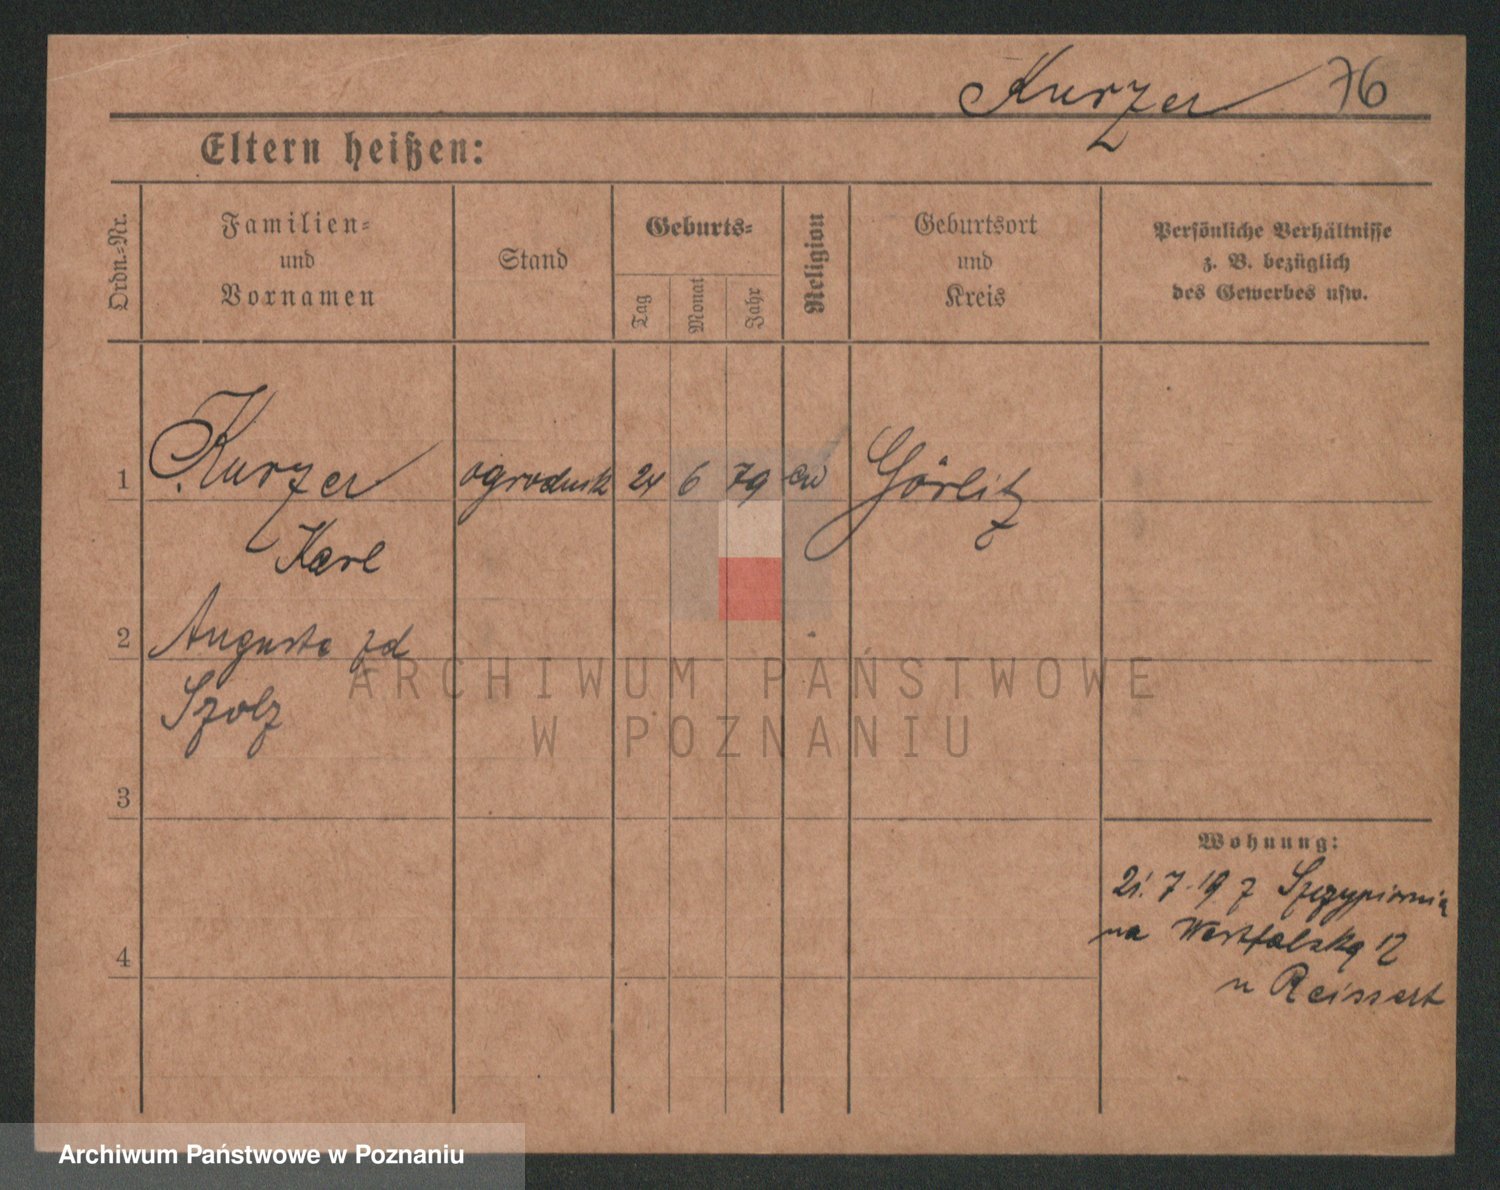 Kurzer 76
Eltern heißen:
Ordn.-Nr.
Familien-
und
Vornamen
Stand
Geburts-
Tag
Monat
Jahr
Religion
Geburtsort
und
Kreis
Persönliche Verhältnisse
z. B. bezüglich
des Gewerbes usw.
1 Kurzer ogrodnik 24 6 79 ew Görlitz
Karl
2 Augusta zd
Szolz
ARCHIWUM PAŃSTWOWE
W POZNANIU
3
Wohnung:
21.7.19 z Szczypiorna
na Westfalska 12
4
u Reissert
Archiwum Państwowe w Poznaniu